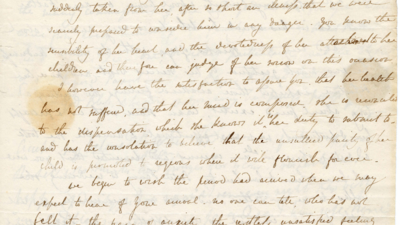 suddenly taken from her after so short an illness, that we were
scarcely prepared to consider him in any danger. You know the
sensibility of her heart and the devotedness of her attachment to her
children and therefore can judge of her sorrow on this occasion
I however have the satisfaction to assure you that her health
has not suffered, and that her mind is composed, she is reconciled
to the dispensation which she knows it her duty to submit to
and has the consolation to believe that the unsullied purity of her
child is promoted to regions where it will flourish for ever.
We begin to wish the period had arrived when we may
expect to hear of your arrival. no one can tell, who has not
felt it, the unsatisfied feeling